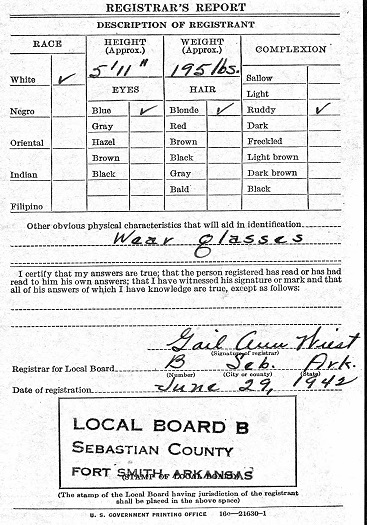 REGISTRAR'S REPORT
DESCRIPTION OF REGISTRANT
RACE HEIGHT (Approx.) WEIGHT (Approx.) COMPLEXION
White ✓ 5'11" 195 lbs. Sallow
EYES HAIR Light
Negro Blue ✓ Blonde ✓ Ruddy ✓
Gray Red Dark
Oriental Hazel Brown Freckled
Brown Black Light brown
Indian Black Gray Dark brown
Bald Black
Filipino
Other obvious physical characteristics that will aid in identification
Wear glasses
I certify that my answers are true; that the person registered has read or has had
read to him his own answers; that I have witnessed his signature or mark and that
all of his answers of which I have knowledge are true, except as follows:
Gail Ann Wiest
(Signature of registrar)
Registrar for Local Board B Seb. Ark.
(Number) (City or county) (State)
Date of registration June 29, 1942
LOCAL BOARD B
SEBASTIAN COUNTY
FORT SMITH, ARKANSAS
(STAMP OF LOCAL BOARD)
(The stamp of the Local Board having jurisdiction of the registrant
shall be placed in the above space)
U. S. GOVERNMENT PRINTING OFFICE 16—21630-1